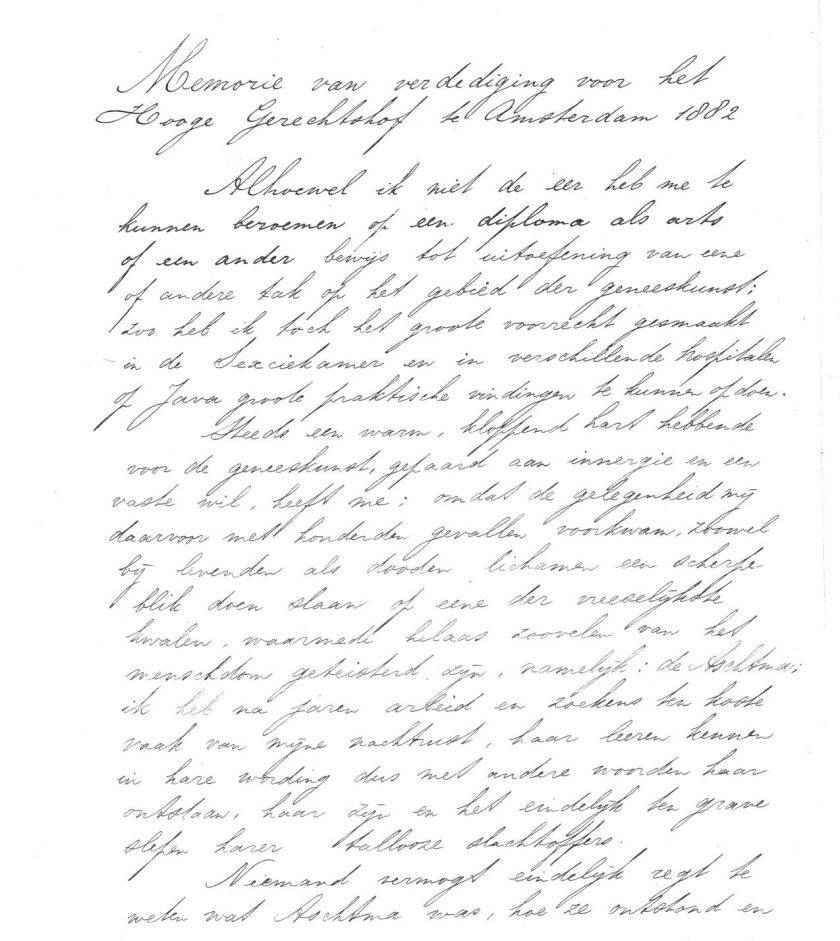 Memorie van verdediging voor het
Hooge Gerechtshof te Amsterdam 1882
Alhoewel ik niet de eer heb me te
kunnen beroemen op een diploma als arts
of een ander bewijs tot uitoefening van eene
of andere tak op het gebied der geneeskunst;
zoo heb ik toch het groote voorrecht gesmaakt
in de Sexciekamer en in verschillende hospitalen
op Java groote praktische vindingen te kunnen opdoen.
Steeds een warm, kloppend hart hebbende
voor de geneeskunst, gepaard aan innergie en een
vaste wil, heeft me; omdat de gelegenheid mij
daarvoor met honderden gevallen voorkwam, zoowel
bij levenden als dooden lichamen een scherpe
blik doen slaan op eene der vreeselijkste
kwalen, waarmede helaas zoovelen van het
menschdom geteisterd zijn, namelijk: de Aschtma;
ik heb na jaren arbeid en zoekens ten koste
vaak van mijne nachtrust, haar leeren kennen
in hare wording dus met andere woorden haar
ontstaan, haar zijn en het eindelijk ten grave
slepen harer tallooze slachtoffers.
Niemand vermogt eindelijk regt te
weten wat Aschtma was, hoe ze ontstond en